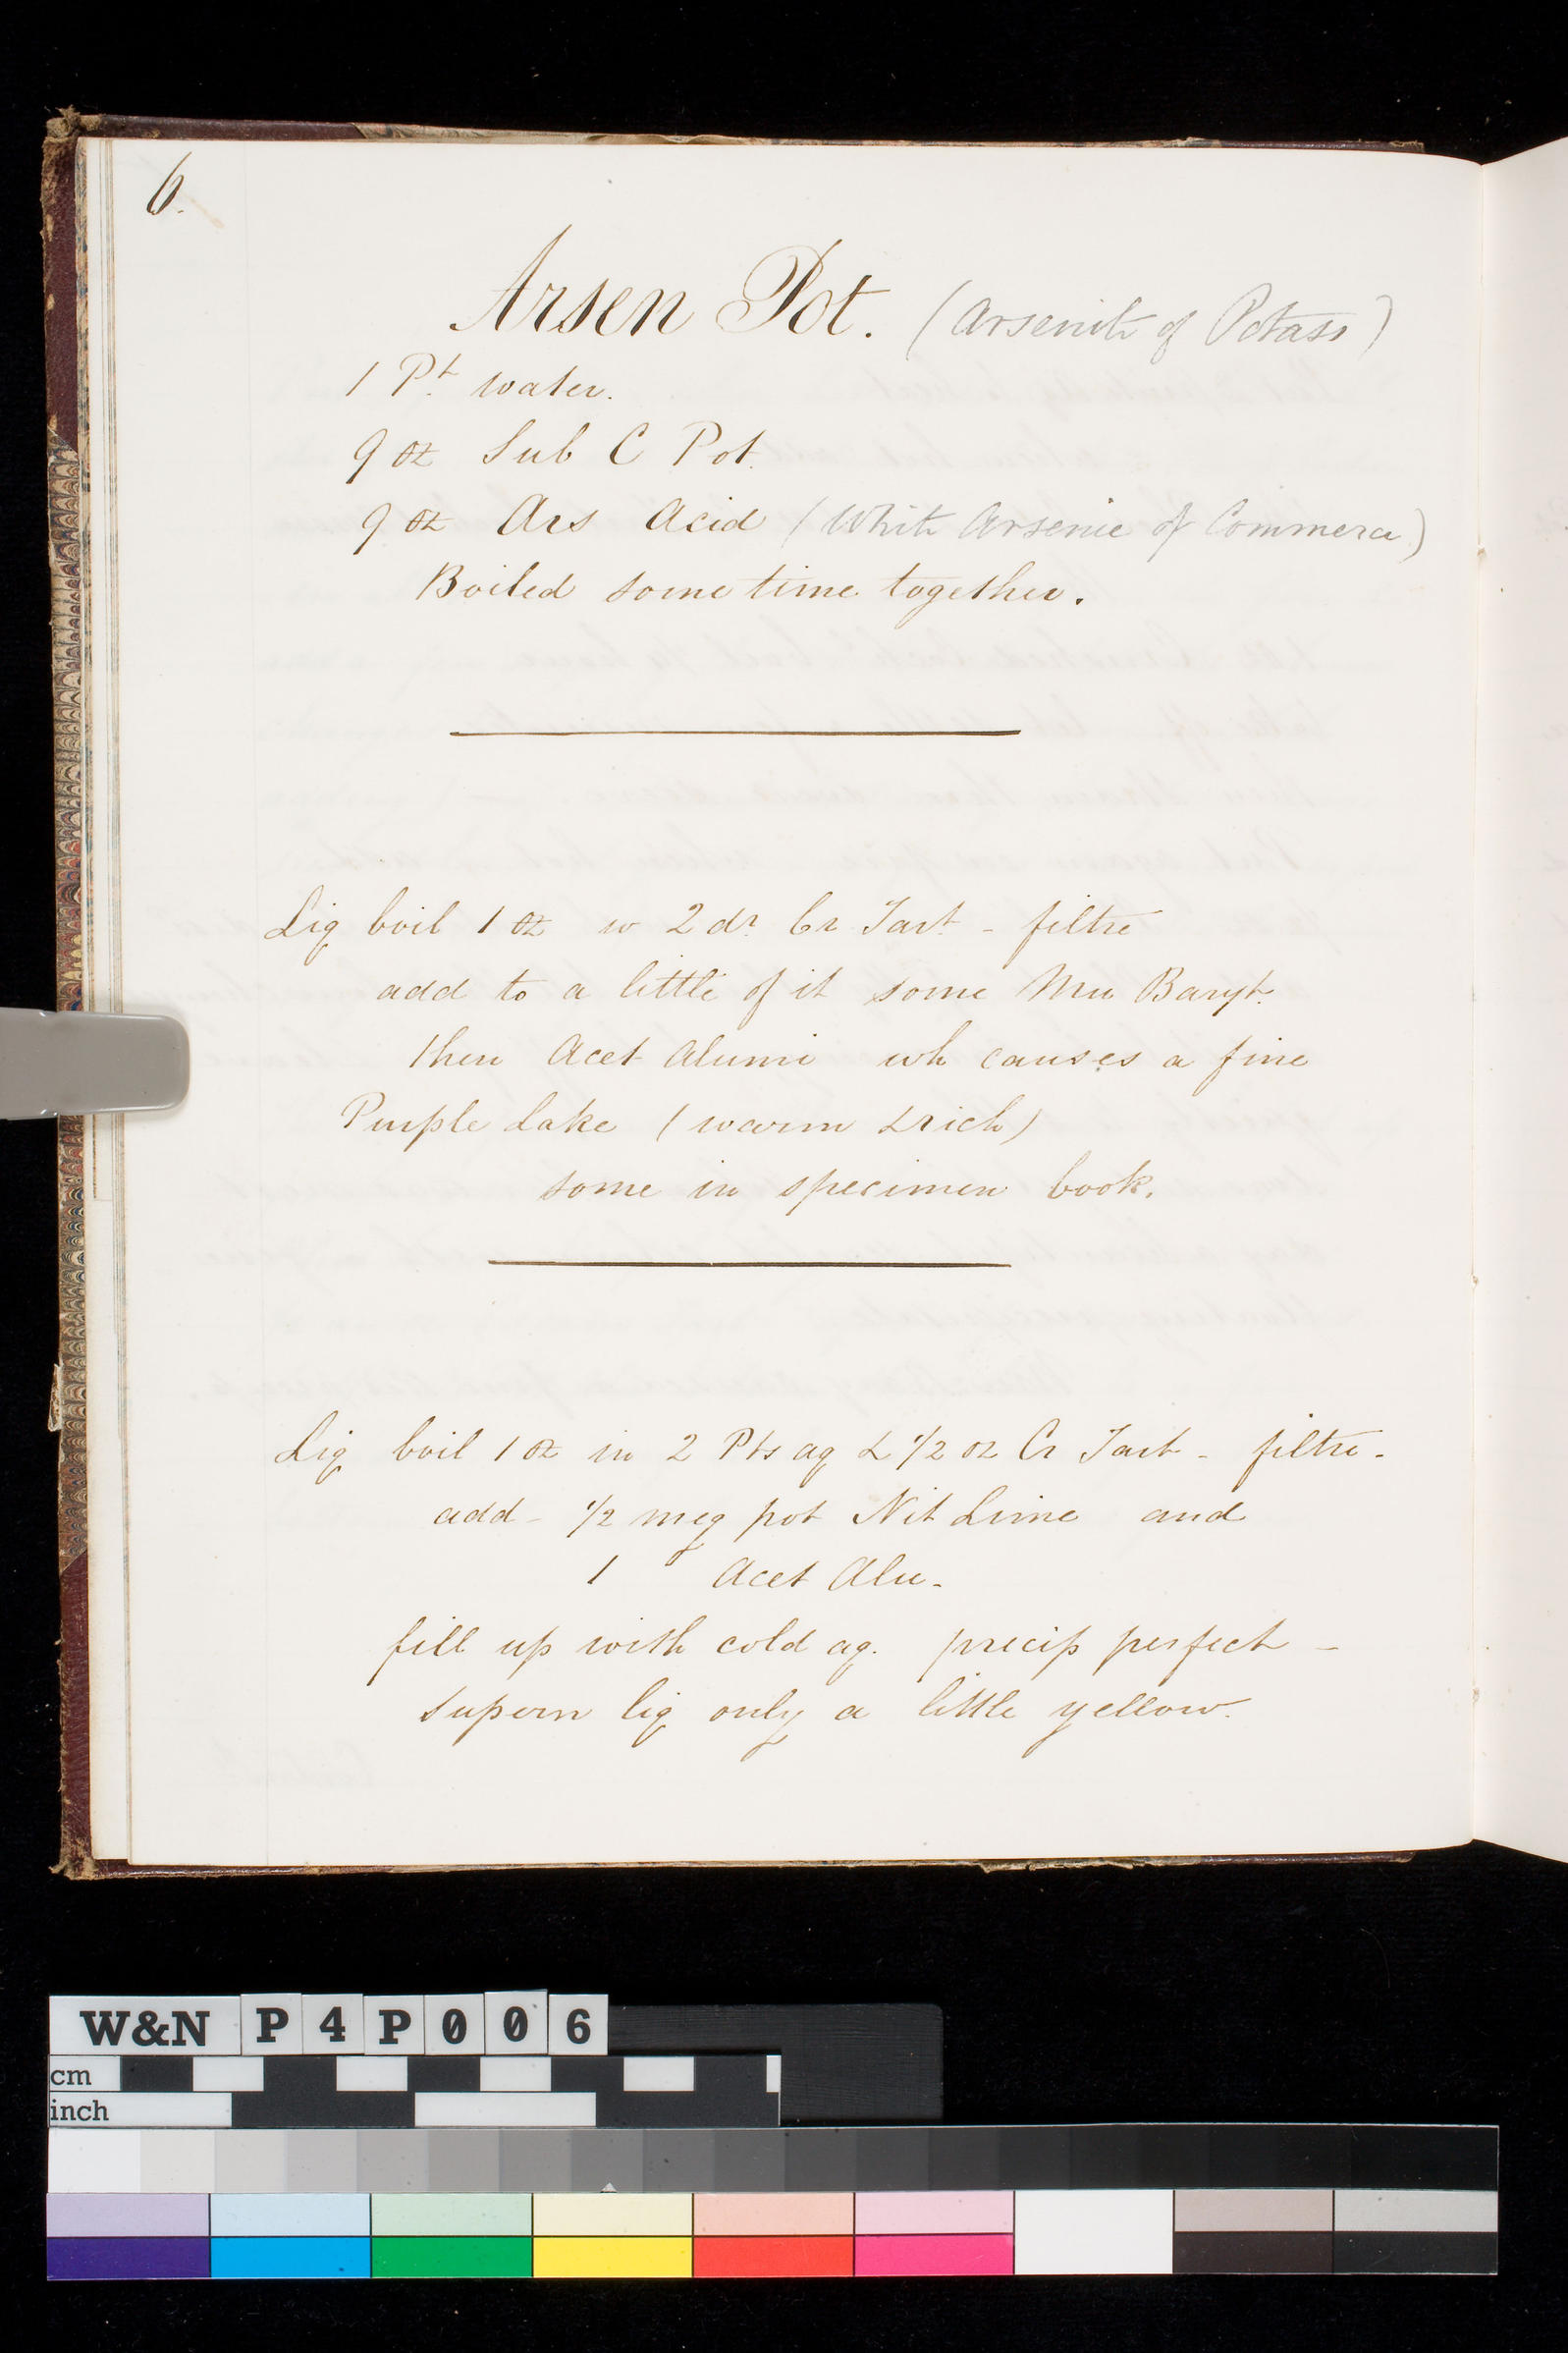 6.
Arsen Pot. (Arsenite of Potass)
1 Pt. water.
9 oz Sub C Pot.
9 oz Ars Acid (White Arsenic of Commerce)
Boiled some time together.
Lig boil 1 oz w 2 dr. Cr Tart - filtre
add to a little of it some Mu Baryt.
then Acet Alumi wh causes a fine
Purple Lake (warm & rich)
some in specimen book.
Lig boil 1 oz in 2 Pts aq & 1/2 oz Cr Tart - filtre -
add - 1/2 meg pot Nit Lime and
1 Acet Alu -
fill up with cold aq. precip perfect -
supern liq only a little yellow.
W&N P4P006
cm
inch